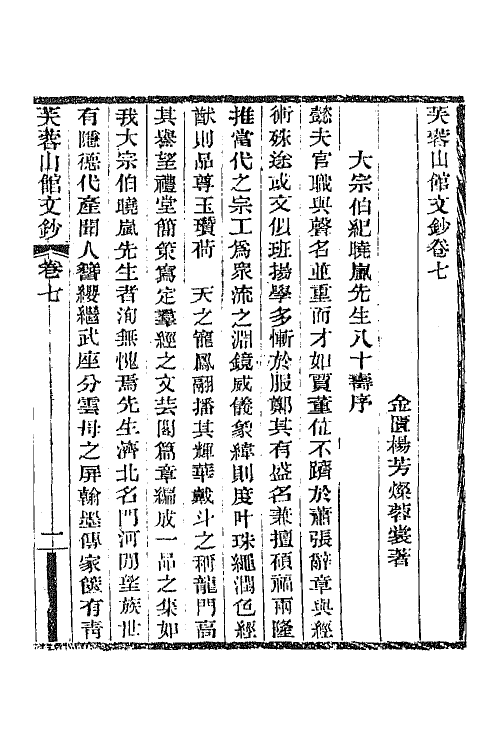 芙蓉山館文鈔卷七
金匱楊芳燦蓉裳著
大宗伯紀曉嵐先生八十壽序
懿夫官職與聲名並重而才如賈董位不躋於蕭張辭章與經
術殊途或文似班揚學多慚於服鄭其有盛名兼擅碩福兩隆
推當代之宗工爲衆流之淵鏡威儀象緯則度叶珠繩潤色經
猷則品尊玉瓚荷　天之寵鳳翮播其輝華戴斗之稱龍門高
其譽望禮堂簡策寫定羣經之文芸閣篇章編成一品之集如
我大宗伯曉嵐先生者洵無愧焉先生濟北名門河間望族世
有隱德代產聞人簪纓繼武座分雲母之屏翰墨傳家篋有青
芙蓉山館文鈔
卷七
一